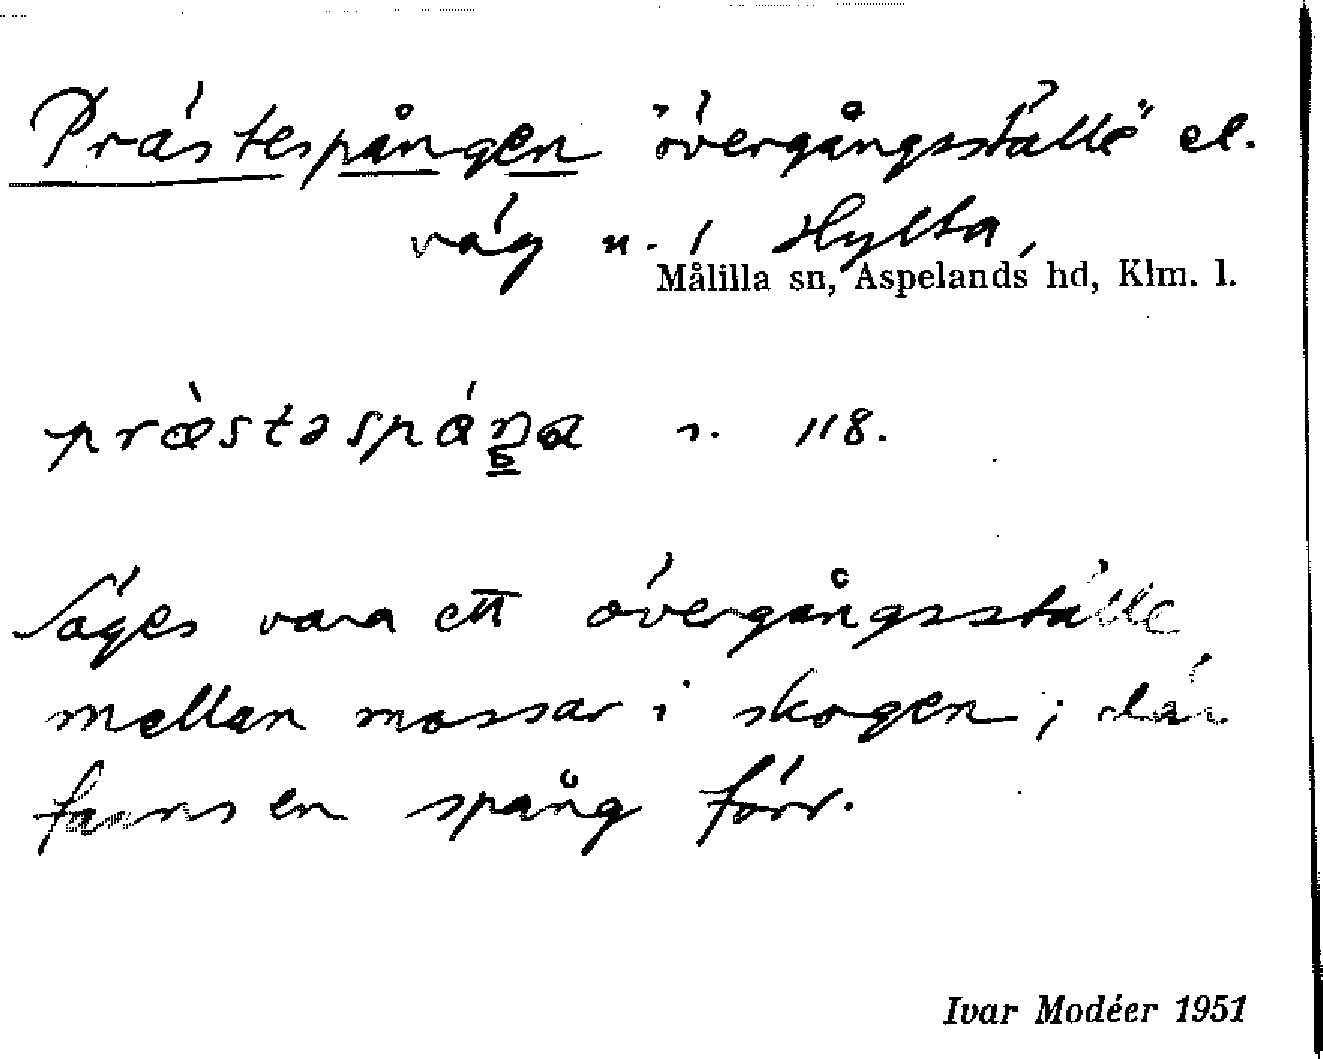 Prästespången "övergångsställe" el.
väg u. i Hylta,
Målilla sn, Aspelands hd, Klm. l.
præ̀stəspáŋa n. 118.
Säges vara ett övergångsställe
mellan mossar i skogen; där
fanns en spång förr.
Ivar Modéer 1951